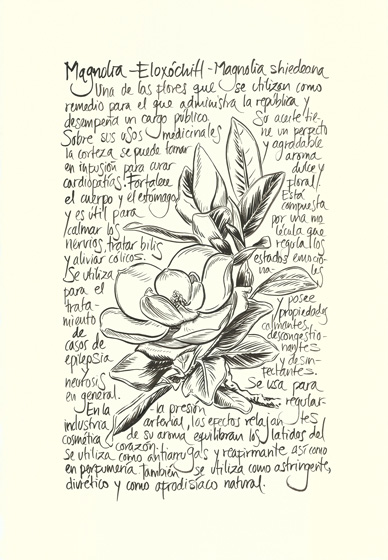 Magnolia - Eloxóchitl - Magnolia shiedeana
Una de las flores que se utilizan como
remedio para el que administra la república y
desempeña un cargo público.
Sobre sus usos medicinales
la corteza se puede tomar
en infusión para curar
cardiopatías. Fortalece
el cuerpo y el estómago
y es útil para
calmar los
nervios, tratar bilis
y aliviar cólicos.
Se utiliza
para el
trata-
miento
de
casos de
epilepsia
y
neurosis
en general.
En la
industria
cosmética
Su aceite tie-
ne un perfecto
y agradable
aroma
dulce y
floral.
Está
compuesta
por una mo
lécula que
regula los
estados emocio-
na- les
y posee
propiedades
calmantes,
descongestio-
nantes
y desin-
fectantes.
Se usa para
regular-
la presión
arterial, los efectos relajan tes
de su aroma equilibran los latidos del
corazón.
se utiliza como antiarrugas y reafirmante así como
en perfumería también se utiliza como astringente,
diurético y como afrodisíaco natural.